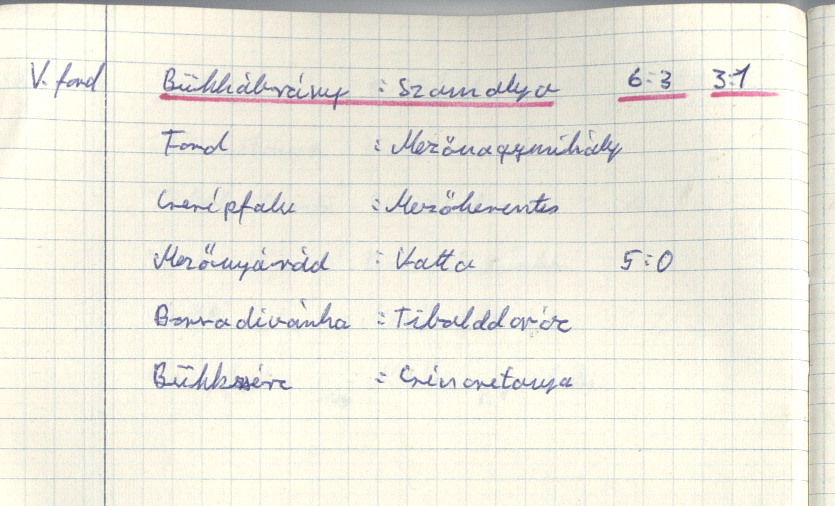 V. ford Bükkábrány : Szomolya 6:3 3:1
Ford : Mezőnagymihály
Cserépfalu : Mezőkeresztes
Mezőnyárád : Vatta 5:0
Borsodivánka : Tibolddaróc
Bükkzsérc : Csincsetanya